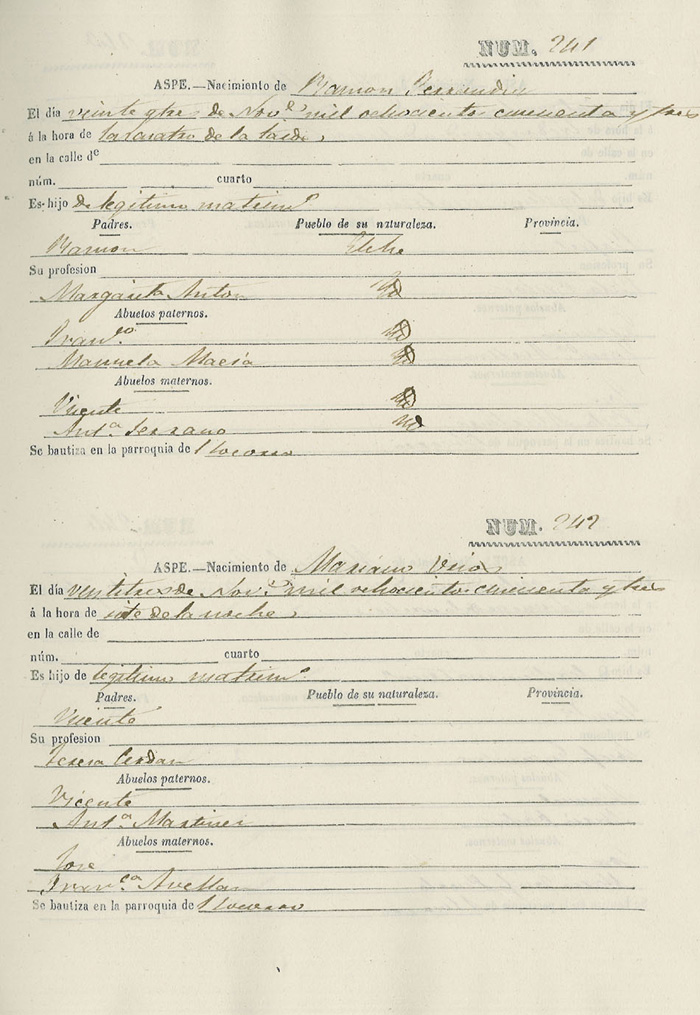 NUM. 241
ASPE.—Nacimiento de Ramon Ferrandiz
El dia veinte y tres de Nov.e mil ochocientos cincuenta y tres
á la hora de las cuatro de la tarde
en la calle de
núm. cuarto
Es hijo de legitimo matrim.o
Padres. Pueblo de su naturaleza. Provincia.
Ramon Elche
Su profesion
Margarita Anton Yd
Abuelos paternos.
Fran.co Yd
Manuela Macia Yd
Abuelos maternos.
Vicente Yd
Ant.a Serrano Yd
Se bautiza en la parroquia de Socorro
NUM. 242
ASPE.—Nacimiento de Mariano
El dia veintitres de Nov.e mil ochocientos cincuenta y tres
á la hora de siete de la noche
en la calle de
núm. cuarto
Es hijo de legitimo matrim.o
Padres. Pueblo de su naturaleza. Provincia.
Vicente
Su profesion
Teresa Cerdan
Abuelos paternos.
Vicente
Ant.a Martinez
Abuelos maternos.
José
Fran.ca Avellan
Se bautiza en la parroquia de Socorro